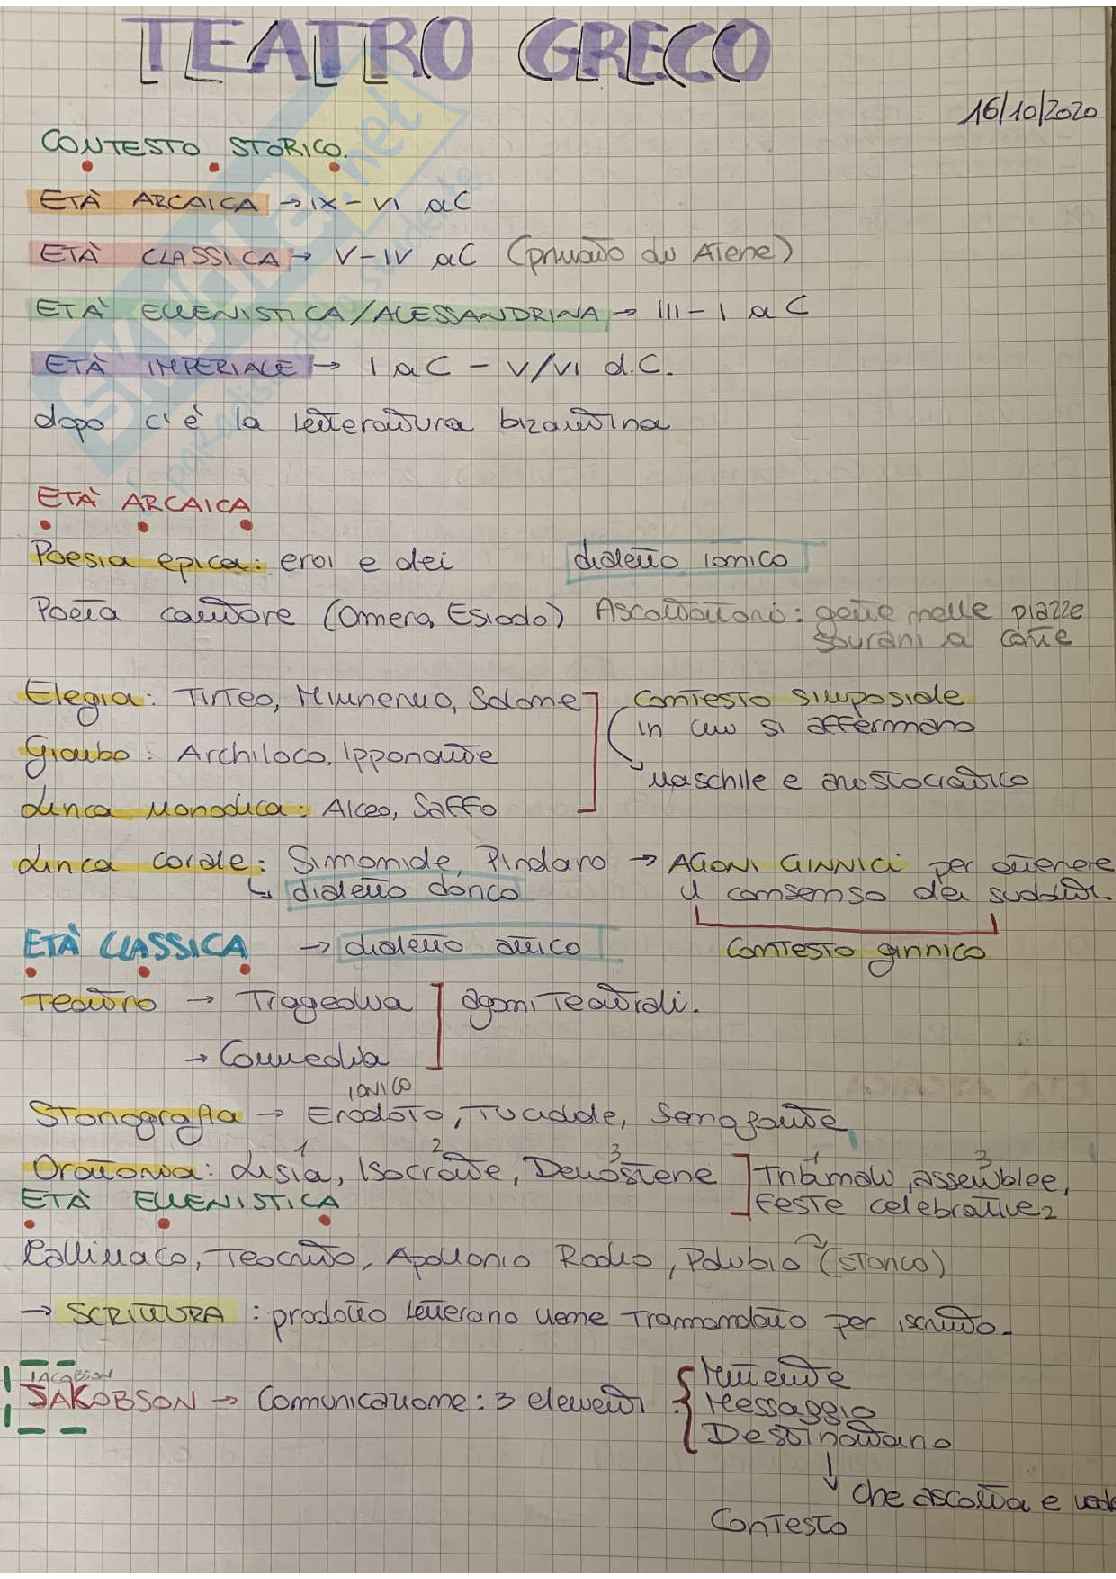 TEATRO GRECO
16/10/2020
CONTESTO STORICO.
ETÀ ARCAICA → IX - VI aC
ETÀ CLASSICA → V - IV aC (primato di Atene)
ETÀ ELLENISTICA/ALESSANDRINA → III - I aC
ETÀ IMPERIALE → I aC - V/VI d.C.
dopo c'è la letteratura bizantina
ETÀ ARCAICA
Poesia epica: eroi e dei dialetto ionico
Poeta cantore (Omero, Esiodo) Ascoltatori: gente nelle piazze
sovrani a corte
Elegia: Tirteo, Mimnermo, Solone contesto simposiale
in cui si affermano
Giambo: Archiloco, Ipponatte
maschile e aristocratico
Lirica monodica: Alceo, Saffo
Lirica corale: Simonide, Pindaro → AGONI GINNICI per ottenere
↳ dialetto dorico il consenso dei sudditi.
ETÀ CLASSICA → dialetto attico contesto ginnico
Teatro → Tragedia agoni teatrali.
→ Commedia
ionico
Storiografia → Erodoto, Tucidide, Senofonte
1 2 3 1 3
Oratoria: Lisia, Isocrate, Demostene Tribunali, assemblee,
ETÀ ELLENISTICA feste celebrative 2
Callimaco, Teocrito, Apollonio Rodio, Polibio (storico)
→ SCRITTURA: prodotto letterario viene tramandato per iscritto.
JACOBSON
JAKOBSON → Comunicazione: 3 elementi Mittente
Messaggio
Destinatario
↓ che ascolta e vede
Contesto